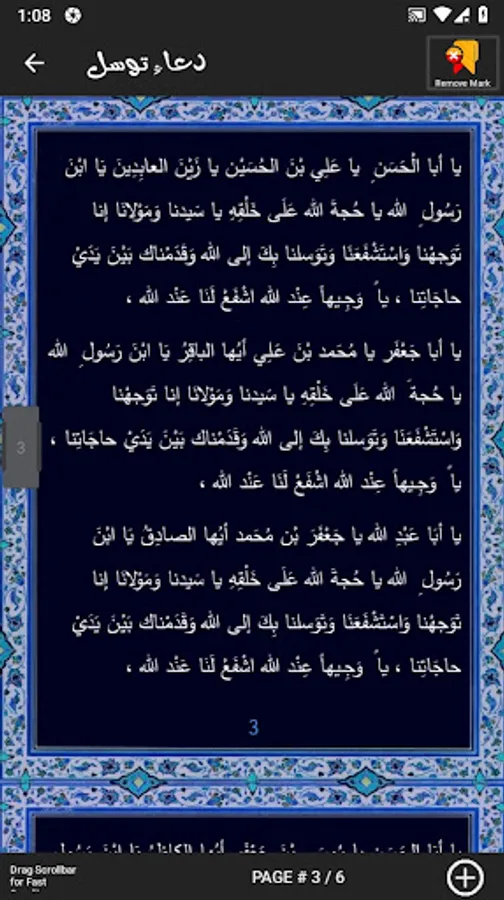 1:08
دعاء توسل
Remove Mark
يا أبا الْحَسَنِ يا عَلِي بْنَ الحُسَيْن يا زَيْنَ العابِدِينَ يَا ابْنَ
رَسُولِ الله يا حُجةَ الله عَلَى خَلْقِهِ يا سَيدنا وَمَوْلانَا إنا
تَوَجهْنا وَاسْتَشْفَعَنَا وَتَوَسلنا بِكَ إلى الله وَقَدمْناك بَيْنَ يَدَيْ
حاجَاتِنا ، ياً وَجِيهاً عِنْد الله اشْفَعْ لَنَا عَنْد الله ،
يا أبا جَعْفَر يا مُحَمد بْنَ عَلِي أيُها الباقِرُ يَا ابْنَ رَسُولِ الله
يا حُجةَ الله عَلَى خَلْقِهِ يا سَيدنا وَمَوْلانَا إنا تَوَجهْنا
وَاسْتَشْفَعَنَا وَتَوَسلنا بِكَ إلى الله وَقَدمْناك بَيْنَ يَدَيْ حاجَاتِنا ،
ياً وَجِيهاً عِنْد الله اشْفَعْ لَنَا عَنْد الله ،
3
يا أبَا عَبْدِ الله يا جَعْفَرَ بْن مُحَمد أيُها الصادِقُ يَا ابْنَ
رَسُولِ الله يا حُجةَ الله عَلَى خَلْقِهِ يا سَيدنا وَمَوْلانَا إنا
تَوَجهْنا وَاسْتَشْفَعَنَا وَتَوَسلنا بِكَ إلى الله وَقَدمْناك بَيْنَ يَدَيْ
حاجَاتِنا ، ياً وَجِيهاً عِنْد الله اشْفَعْ لَنَا عَنْد الله ،
3
Drag Scrollbar
for Fast
PAGE # 3 / 6